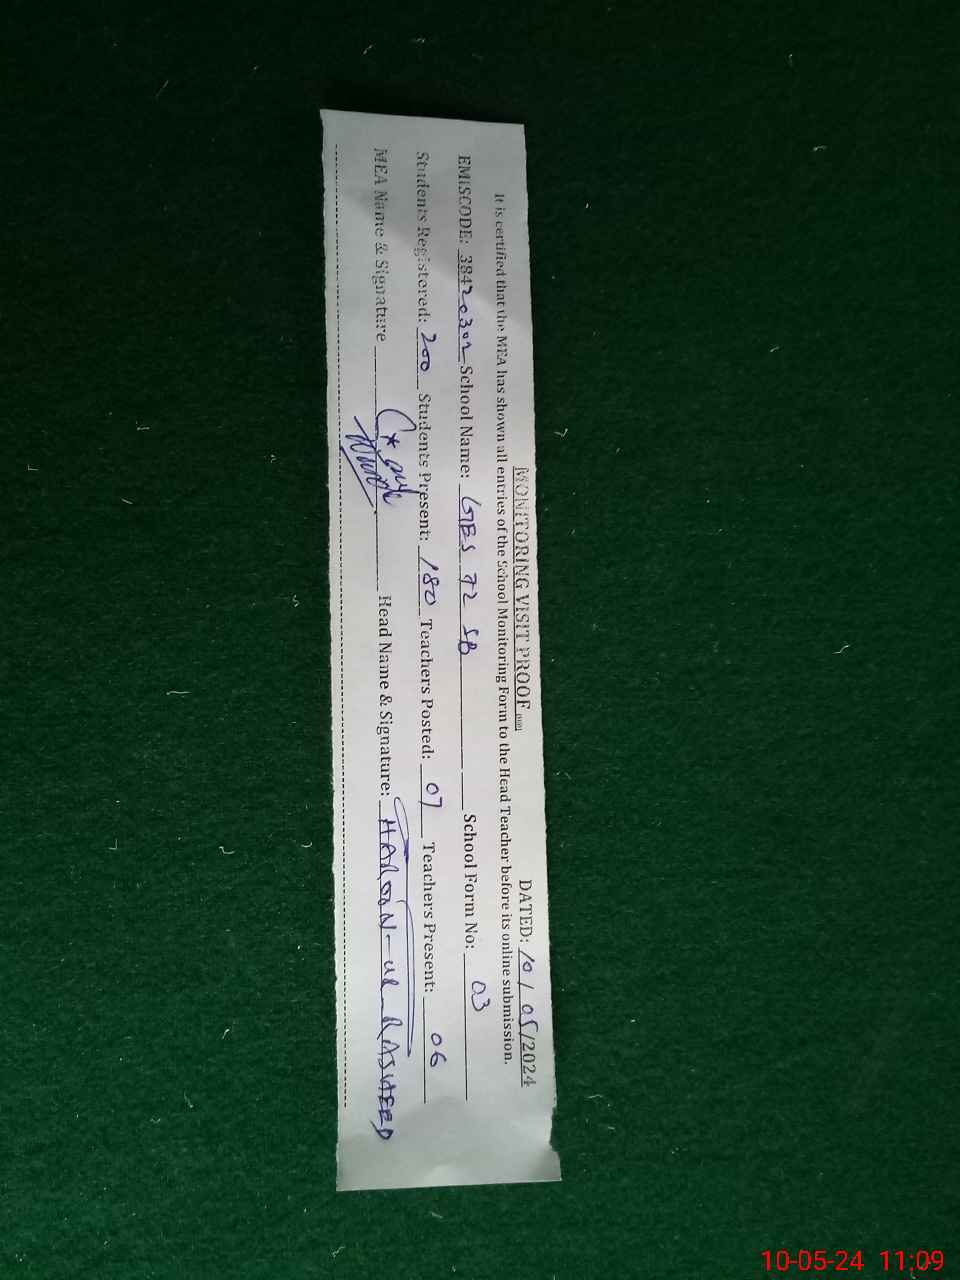 MONITORING VISIT PROOF DATED: 10/05/2024
It is certified that the MEA has shown all entries of the School Monitoring Form to the Head Teacher before its online submission.
EMISCODE: 38420302 School Name: GES 72 SB School Form No: 03
Students Registered: 200 Students Present: 180 Teachers Posted: 07 Teachers Present: 06
MEA Name & Signature Head Name & Signature: HAROON-UR-RASHEED
10-05-24 11:09